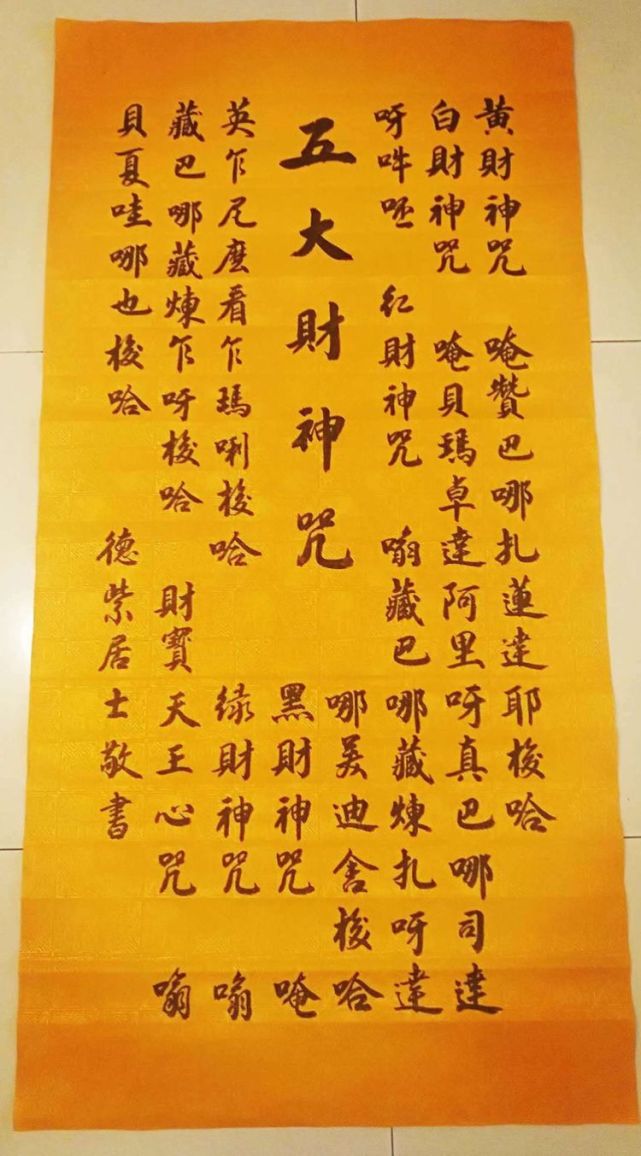 黃財神咒 唵贊巴哪扎蓮達耶梭哈
白財神咒 唵貝瑪卓達阿里呀真巴哪司達
呀吽呸 紅財神咒 嗡藏巴哪藏煉扎呀達
哪美迪舍梭哈
五大財神咒
黑財神咒 唵
英乍尼麽看乍瑪唎梭哈 綠財神咒 嗡
藏巴哪藏煉乍呀梭哈 財寶天王心咒 嗡
貝夏哇哪也梭哈 德紫居士敬書